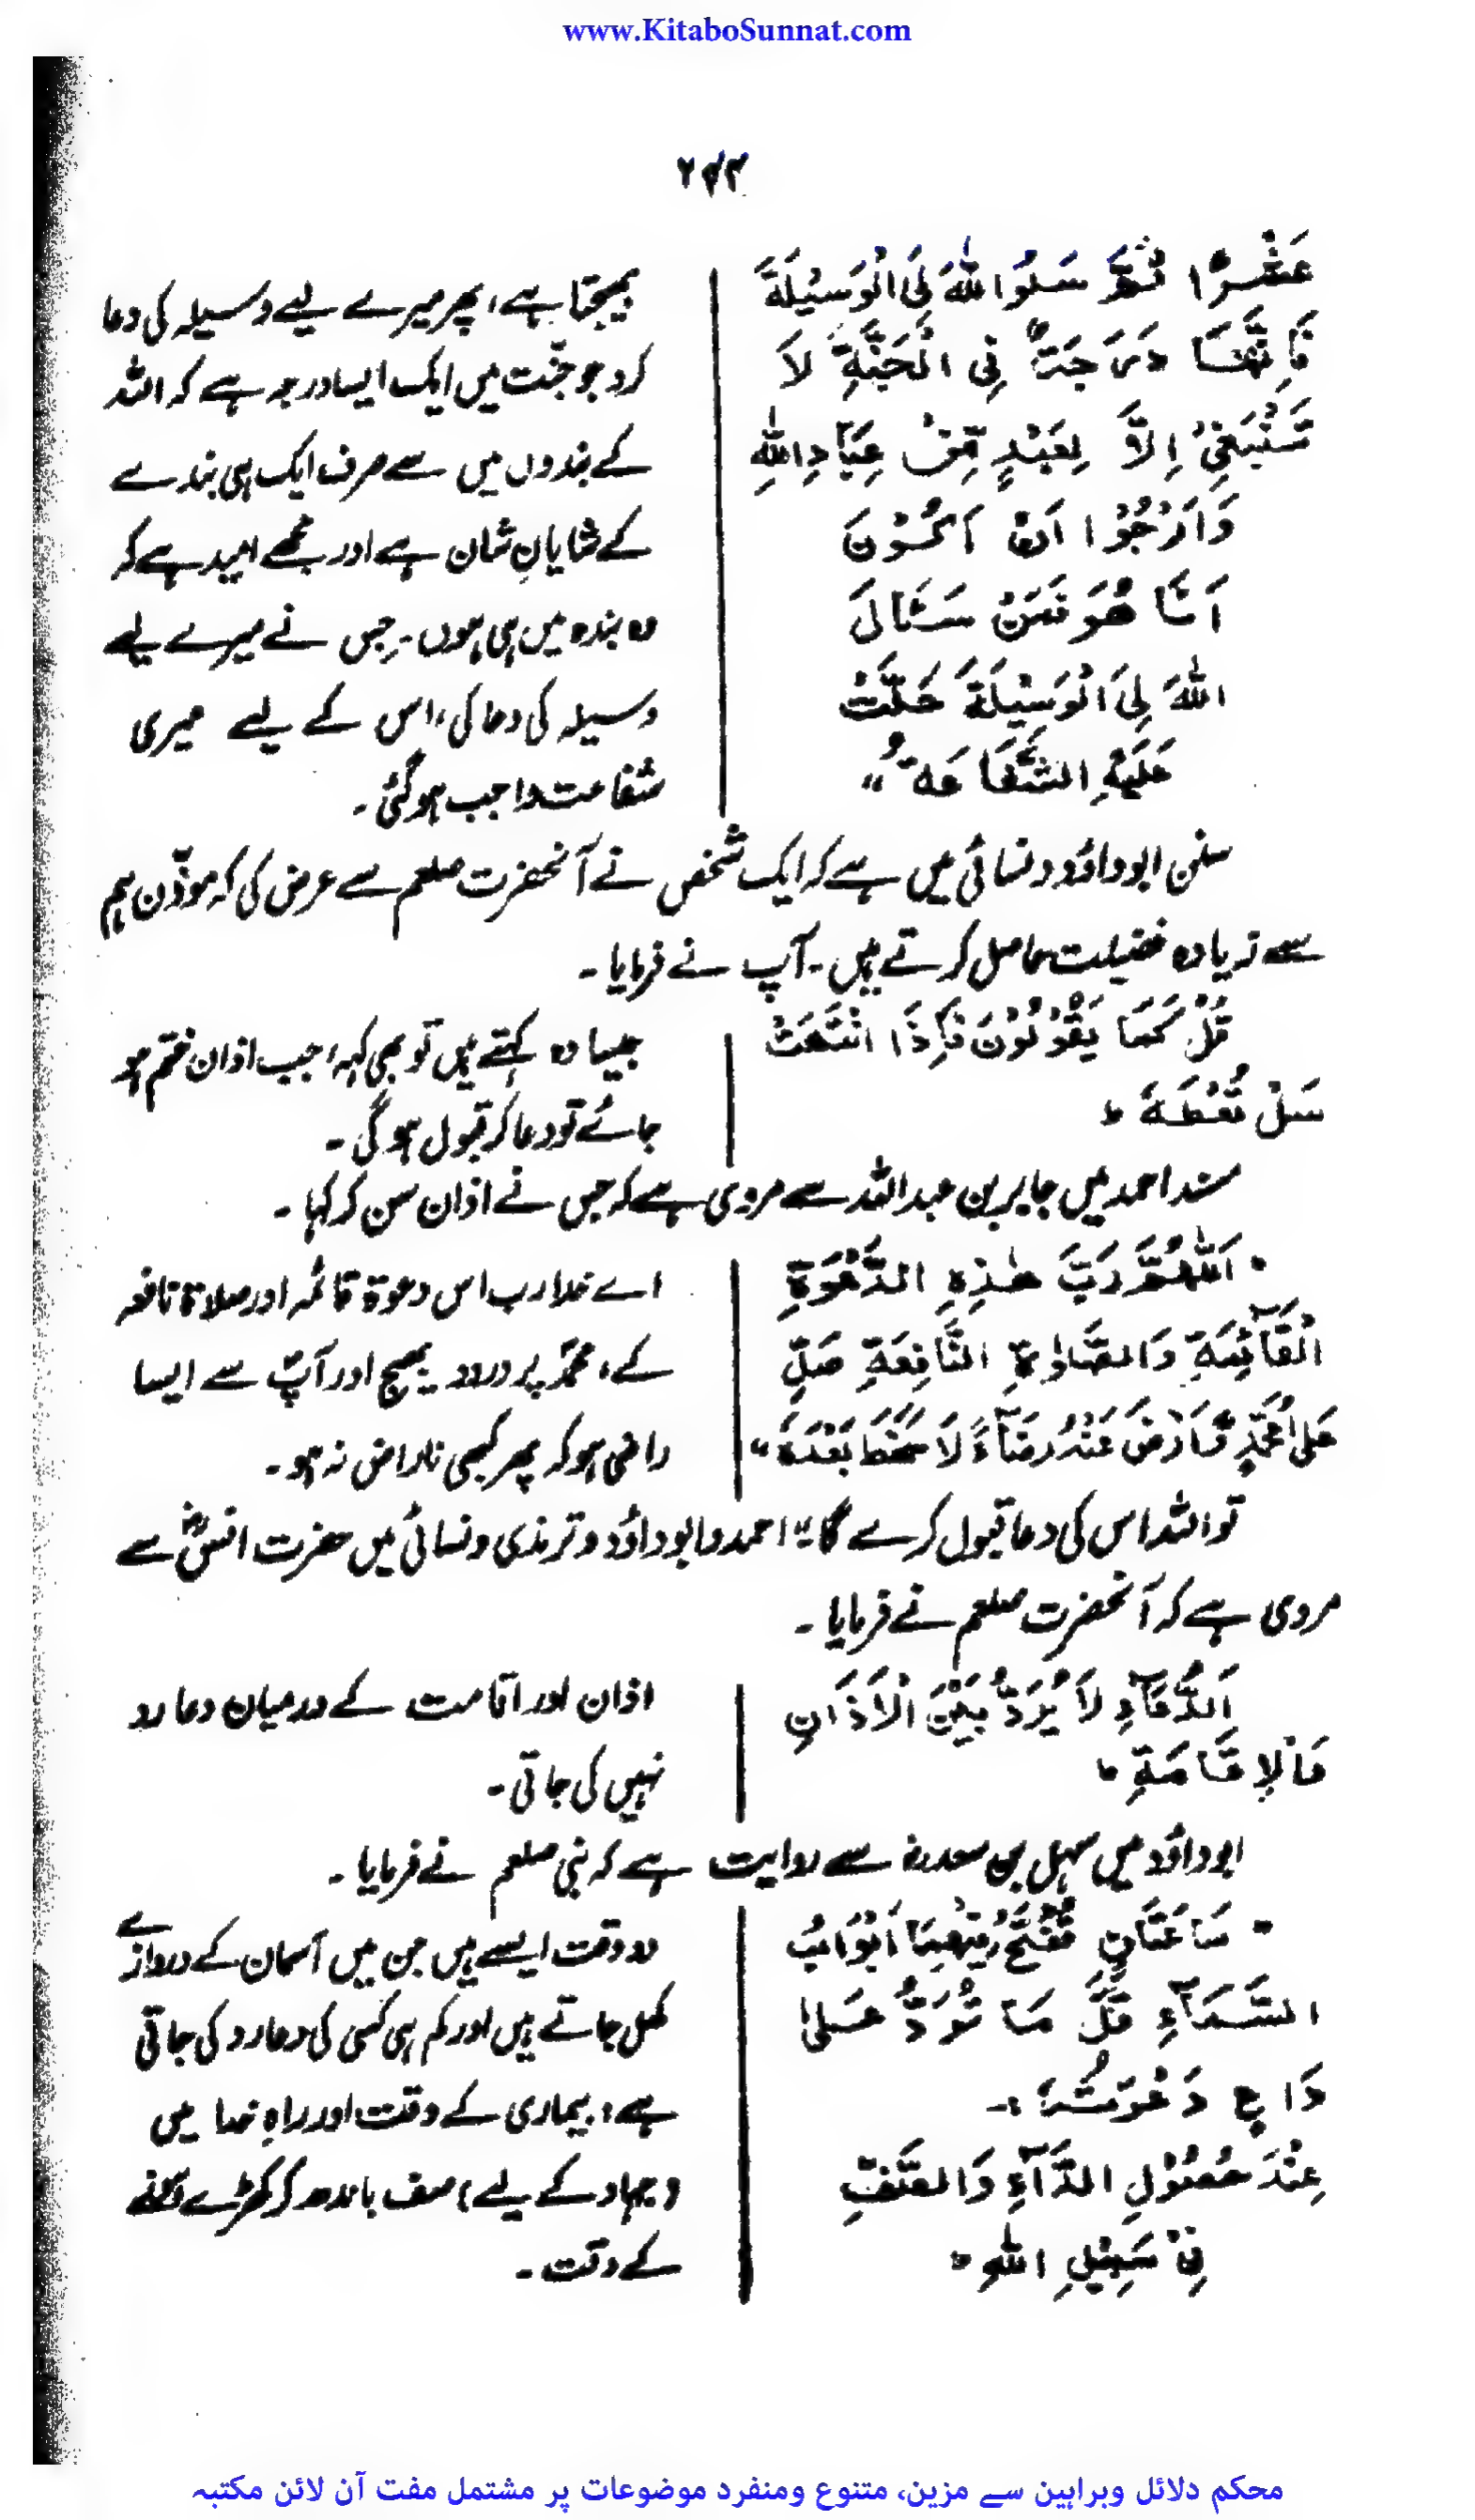 www.KitaboSunnat.com
عَشْرًا ثُمَّ سَلُوا اللهَ لِیَ الْوَسِیْلَةَ
فَاِنَّهَا دَرَجَةٌ فِی الْجَنَّةِ لَا
تَنْبَغِیْ اِلَّا لِعَبْدٍ مِّنْ عِبَادِ اللهِ
وَاَرْجُوْا اَنْ اَكُوْنَ
اَنَا هُوَ فَمَنْ سَئَالَ
اللهَ لِیَ الْوَسِیْلَةَ حَلَّتْ
عَلَیْهِ الشَّفَاعَةُ"
بھیجتا ہے، پھر میرے لیے وسیلہ کی دعا
کرو جو جنّت میں ایک ایسا درجہ ہے کہ اللہ
کے بندوں میں سے صرف ایک ہی بندے
کے شایانِ شان ہے اور مجھے امید ہے کہ
وہ بندہ میں ہی ہوں۔ جس نے میرے لیے
وسیلہ کی دعا کی، اس کے لیے میری
شفاعت واجب ہو گئی۔
سنن ابو داؤد و نسائی میں ہے کہ ایک شخص نے آنحضرت صلعم سے عرض کی کہ موذّن ہم
سے زیادہ فضیلت حاصل کرتے ہیں۔ آپ نے فرمایا۔
قُلْ كَمَا یَقُوْلُوْنَ فَاِذَا انْتَهَتْ
سَلْ تُعْطَهٗ
جیسا وہ کہتے ہیں تو بھی کہہ، جب اذان ختم ہو
جائے تو دعا کر قبول ہو گی۔
مسند احمد میں جابر بن عبداللہ سے مروی ہے کہ جس نے اذان سن کر کہا۔
"اَللّٰهُمَّ رَبَّ هٰذِهِ الدَّعْوَةِ
الْقَآئِمَةِ وَالصَّلٰوةِ النَّافِعَةِ صَلِّ
عَلٰی مُحَمَّدٍ وَّارْضَ عَنْهُ رِضَآءً لَا سَخَطَ بَعْدَهٗ"
اے خدا رب اس دعوۃ قائمہ اور صلاۃ نافعہ
کے، محمدؐ پر درود بھیج اور آپؐ سے ایسا
راضی ہو کہ پھر کبھی ناراض نہ ہو۔
تو اللہ اس کی دعا قبول کرے گا" احمد و ابو داؤد و ترمذی و نسائی میں حضرت انسؓ سے
مروی ہے کہ آنحضرت صلعم نے فرمایا۔
اَلدُّعَآءِ لَا یُرَدُّ بَیْنَ الْاَذَانِ
وَالْاِقَامَةِ
اذان اور اقامت کے درمیان دعا رد
نہیں کی جاتی۔
ابو داؤد میں سہل بن سعد سے روایت ہے کہ نبی صلعم نے فرمایا۔
"سَاعَتَانِ تُفْتَحُ فِیْهِمَا اَبْوَابُ
السَّمَآءِ قَلَّ مَا تُرَدُّ عَلٰی
دَاعٍ دَعْوَتُهٗ:۔
عِنْدَ حُصُوْلِ الدَّآءِ وَالصَّفِّ
فِیْ سَبِیْلِ اللهِ"
دو وقت ایسے ہیں جن میں آسمان کے دروازے
کھل جاتے ہیں اور کم ہی کسی کی دعا رد کی جاتی
ہے، بیماری کے وقت اور راہِ خدا میں
(جہاد کے لیے) صف باندھ کر کھڑے ہونے
کے وقت۔
محکم دلائل وبراہین سے مزین، متنوع ومنفرد موضوعات پر مشتمل مفت آن لائن مکتبہ